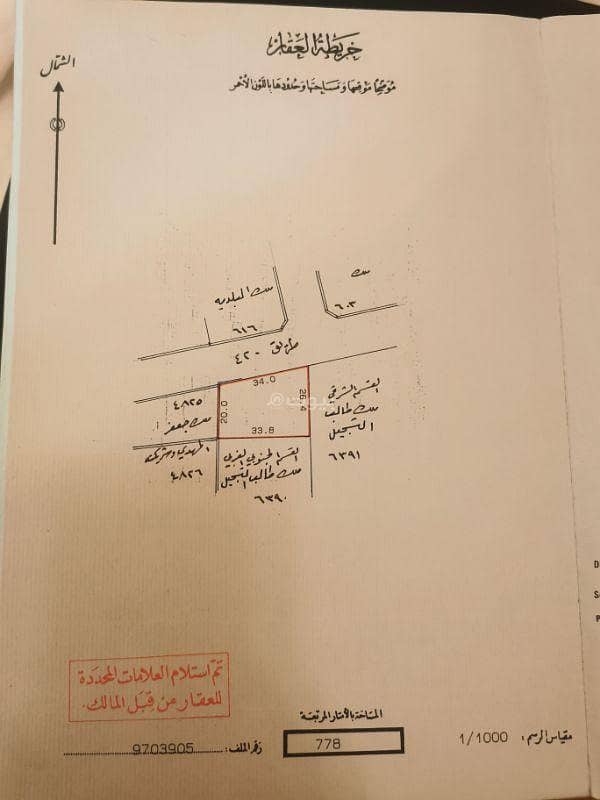 خريطة العقار
الشمال
موضحاً موقعها ومساحتها وحدودها باللون الأحمر
ملك البلديه
٦١٦
ملك
٦٠٣
طريق ٤٢٠
34.0
26.4
20.0
33.8
بيوت
القسم الشرقي
ملك طالب
التتجيل
٦٣٩١
٤٨٢٥
ملك جعفر
المهدي وشريكه
٤٨٢٦
القسم الجنوبي الغربي
ملك طالب التتجيل
٦٣٩٠
تم استلام العلامات المحددة
للعقار من قبل المالك.
المساحة بالأمتار المربعة
778
مقياس الرسم: 1/1000
رقم الملف: 9703905